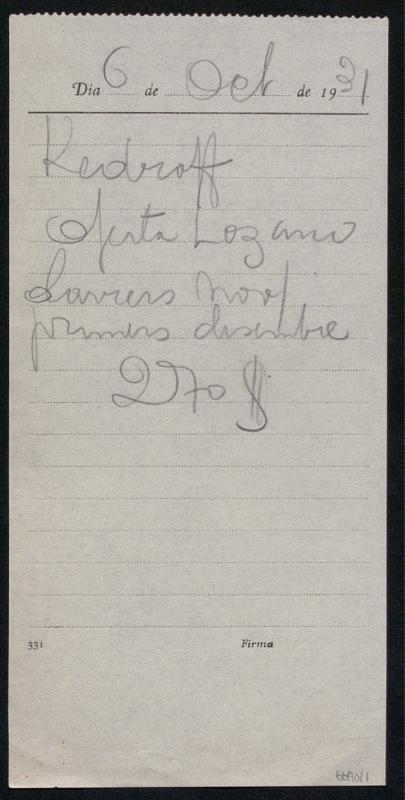 Día 6 de Oct de 1931
Kedroff
oferta Lozano
Darrers nov/
primers desembre
270 $
331 Firma
6690/1